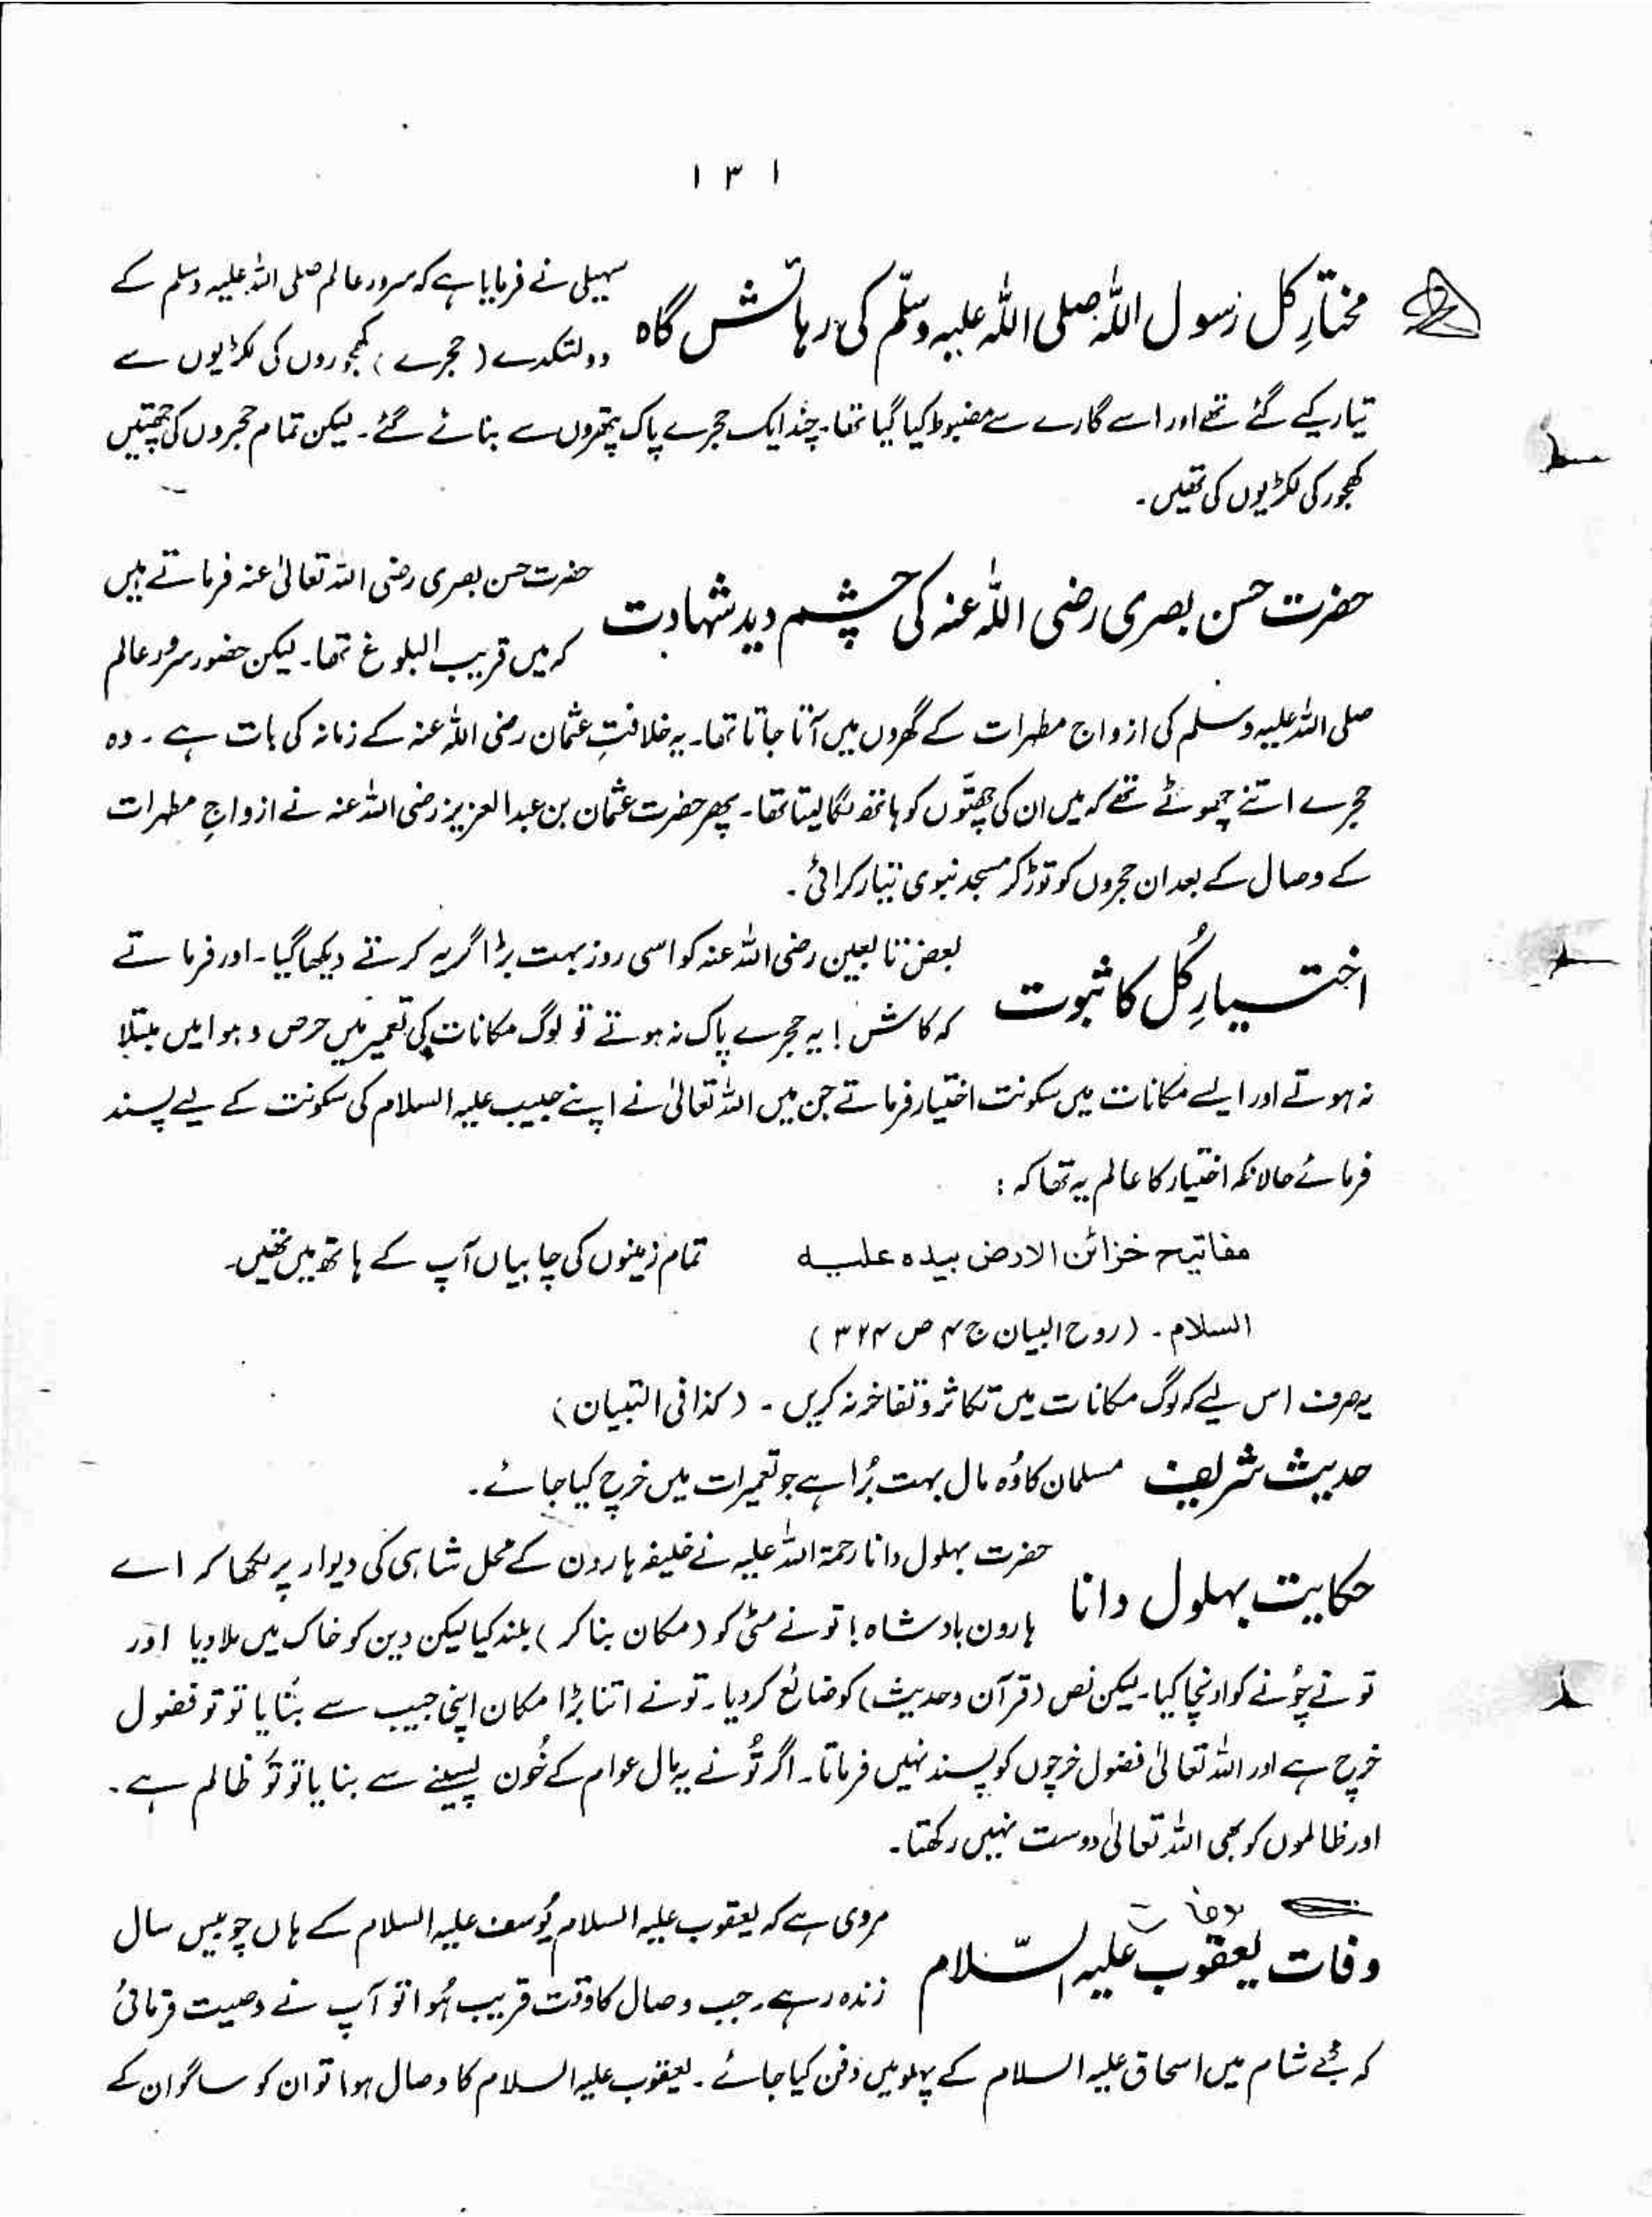 ۱۳۱
مختارِ کل رسول اللہ صلی اللہ علیہ وسلّم کی رہائش گاہ
سہیلی نے فرمایا ہے کہ سرور عالم صلی اللہ علیہ وسلم کے
دولتکدے (حجرے) کھجوروں کی لکڑیوں سے
تیار کیے گئے تھے اور اسے گارے سے مضبوط کیا گیا تھا۔ چند ایک حجرے پاک پتھروں سے بنائے گئے۔ لیکن تمام حجروں کی چھتیں
کھجور کی لکڑیوں کی تھیں۔
حضرت حسن بصری رضی اللہ عنہ کی چشم دید شہادت
حضرت حسن بصری رضی اللہ تعالیٰ عنہ فرماتے ہیں
کہ میں قریب البلوغ تھا۔ لیکن حضور سرور عالم
صلی اللہ علیہ وسلم کی ازواج مطہرات کے گھروں میں آتا جاتا تھا۔ یہ خلافتِ عثمان رضی اللہ عنہ کے زمانہ کی بات ہے۔ وہ
حجرے اتنے چھوٹے تھے کہ میں ان کی چھتّوں کو ہاتھ لگا لیتا تھا۔ پھر حضرت عثمان بن عبدالعزیز رضی اللہ عنہ نے ازواجِ مطہرات
کے وصال کے بعد ان حجروں کو توڑ کر مسجد نبوی تیار کرائی۔
اختیارِ کُل کا ثبوت
بعض تابعین رضی اللہ عنہ کو اسی روز بہت بڑا گریہ کرتے دیکھا گیا۔ اور فرماتے
کہ کاش! یہ حجرے پاک نہ ہوتے تو لوگ مکانات کی تعمیر میں حرص و ہوا میں مبتلا
نہ ہوتے اور ایسے مکانات میں سکونت اختیار فرماتے جن میں اللہ تعالیٰ نے اپنے حبیب علیہ السلام کی سکونت کے لیے پسند
فرمائے حالانکہ اختیار کا عالم یہ تھا کہ :
مفاتیح خزائن الارض بیدہ علیہ تمام زمینوں کی چابیاں آپ کے ہاتھ میں تھیں۔
السلام۔ (روح البیان ج ۴ ص ۳۲۴)
یہ صرف اس لیے کہ لوگ مکانات میں تکاثر و تفاخر نہ کریں۔ (کذا فی التبیان)
حدیث شریف مسلمان کا وُہ مال بہت بُرا ہے جو تعمیرات میں خرچ کیا جائے۔
حکایت بہلول دانا
حضرت بہلول دانا رحمۃ اللہ علیہ نے خلیفہ ہارون کے محل شاہی کی دیوار پر لکھا کہ اے
ہارون بادشاہ! تو نے مٹی کو (مکان بنا کر) بلند کیا لیکن دین کو خاک میں ملا دیا اور
تو نے چُونے کو اونچا کیا۔ لیکن نص (قرآن وحدیث) کو ضائع کر دیا۔ تو نے اتنا بڑا مکان اپنی جیب سے بنایا تو تو فضول
خرچ ہے اور اللہ تعالیٰ فضول خرچوں کو پسند نہیں فرماتا۔ اگر تُو نے یہ مال عوام کے خُون پسینے سے بنایا تو تُو ظالم ہے۔
اور ظالموں کو بھی اللہ تعالیٰ دوست نہیں رکھتا۔
وفات یعقوب علیہ السّلام
مروی ہے کہ یعقوب علیہ السلام یُوسف علیہ السلام کے ہاں چوبیس سال
زندہ رہے۔ جب وصال کا وقت قریب ہُوا تو آپ نے وصیت فرمائی
کہ مجھے شام میں اسحاق علیہ السلام کے پہلو میں دفن کیا جائے۔ یعقوب علیہ السلام کا وصال ہوا تو ان کو ساگوان کے